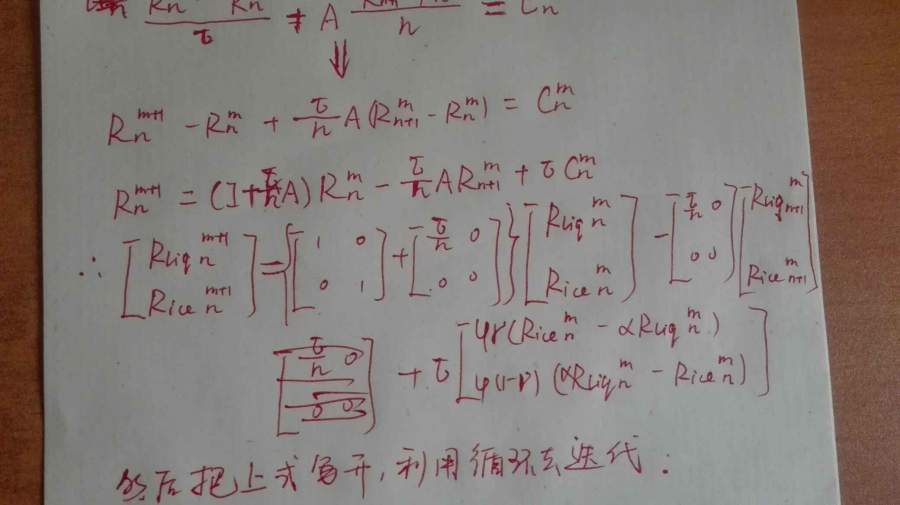 τ + A h = Cn
⇓
Rn^{m+1} - Rn^m + τ/h A(R_{n+1}^m - Rn^m) = Cn^m
Rn^{m+1} = (I + τ/h A) Rn^m - τ/h A R_{n+1}^m + τ Cn^m
∴ [Rliq n^{m+1} ; Rice n^{m+1}] = {[1 0 ; 0 1] + [τ/h 0 ; 0 0]} [Rliq n^m ; Rice n^m] - [τ/h 0 ; 0 0] [Rliq n+1^m ; Rice n+1^m]
+ τ [φγ(Rice n^m - αRliq n^m) ; φ(1-γ)(αRliq n^m - Rice n^m)]
然后把上式写开,利用循环去迭代: